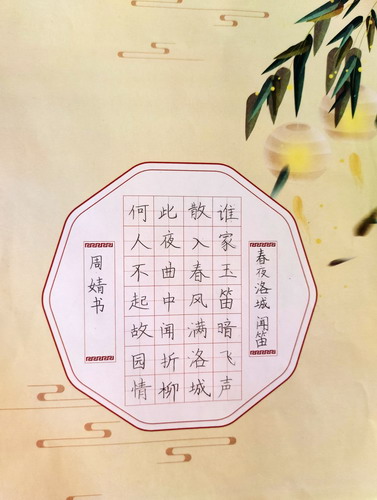 春夜洛城 闻笛
谁家玉笛暗飞声
散入春风满洛城
此夜曲中闻折柳
何人不起故园情
周婧书